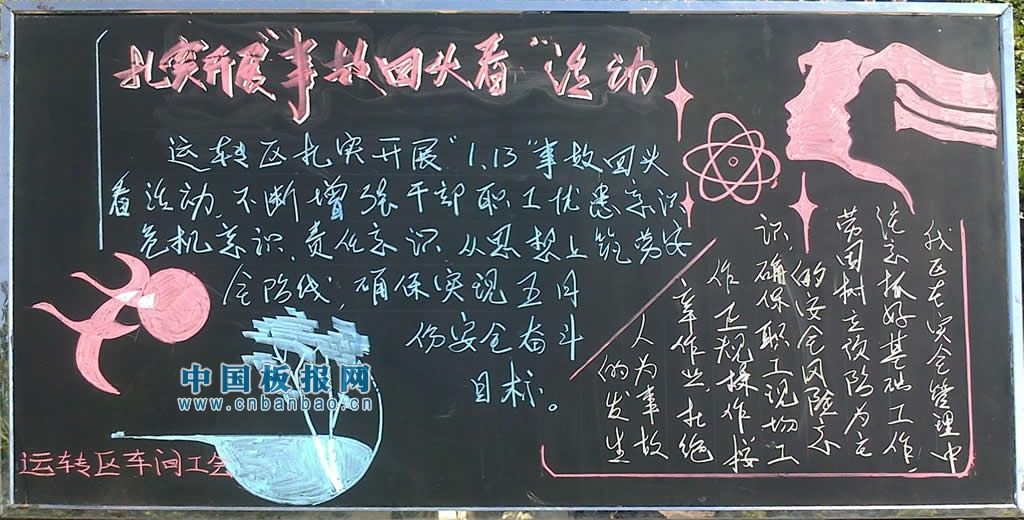 扎实开展"事故回头看"活动
运转区扎实开展"1.13"事故回头
看活动,不断增强干部职工忧患意识、
危机意识、责任意识,从思想上筑劳安
全防线,确保实现五月
份安全奋斗
目标。
我区在安全管理中
注意抓好基础工作,
劳固树立预防为主
的安全风险意
识,确保职工现场工
作卫规操作按
章作业,杜绝
人为事故
的发生
运转区车间工会
中国板报网
www.cnbanbao.cn